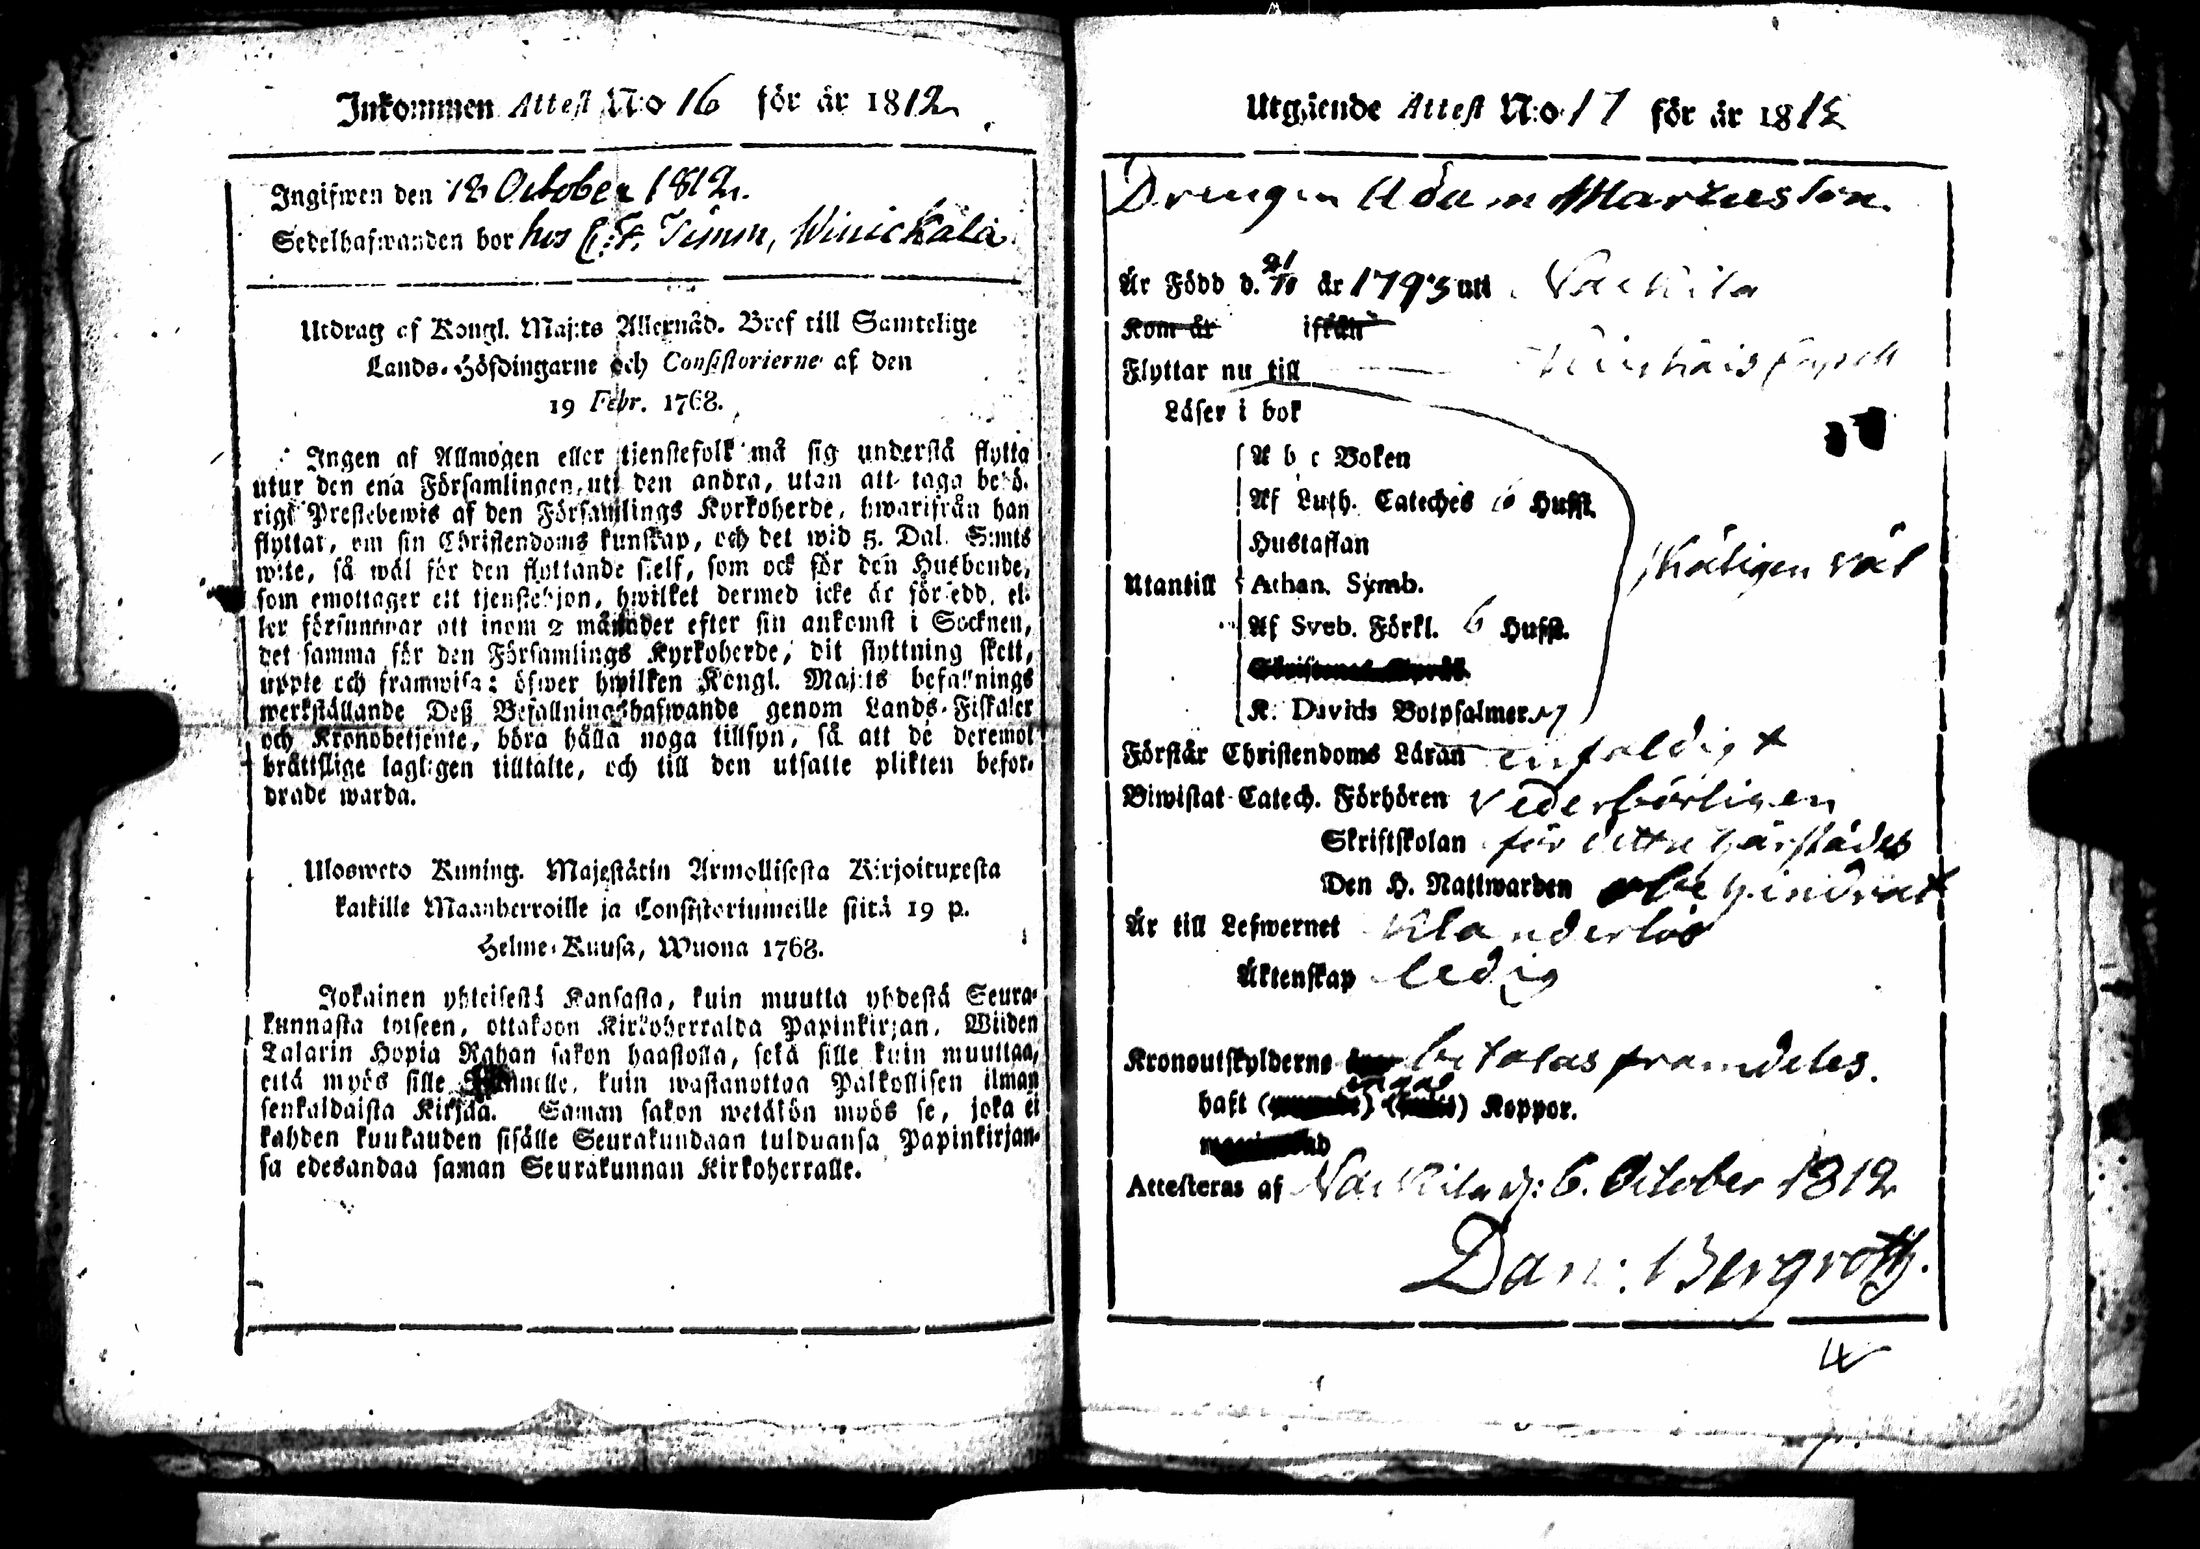 Inkommen Attest N:o 16 för år 1812
Ingifwen den 18 October 1812.
Sedelhafwanden bor hos C. F. Timm, Winickala
Utdrag af Kongl. Maj:ts Allernåd. Bref till Samtelige
Lands-Höfdingarne och Consistorierne af den
19 Febr. 1768.
Ingen af Allmogen eller tjenstefolk må sig understå flytta
utur den ena Församlingen uti den andra, utan att taga behö-
rigt Prestebewis af den Församlings Kyrkoherde, hwarifrån han
flyttar, om sin Christendoms kunskap, och det wid 5. Dal. S:mts
wite, så wäl för den flyttande sielf, som ock för den Husbonde,
som emottager ett tjenstehjon, hwilket dermed icke är försedd, el-
ler försummar att inom 2 månader efter sin ankomst i Socknen,
det samma för den Församlings Kyrkoherde, dit flyttning skett,
uppte och framwisa: öfwer hwilken Kongl. Maj:ts befallnings
werkställande Deß Befallningshafwande genom Lands-Fiskaler
och Kronobetjente, böra hålla noga tillsyn, så att de deremot
bråttslige lagligen tilltalte, och till den utsatte plikten befor-
drade warda.
Ulosweto Kuning. Majestätin Armollisesta Kirjoituxesta
kaikille Maanherroille ja Consistoriumeille siitä 19 p.
Helme-Kuusa, Wuona 1768.
Jokainen yhteisestä Kansasta, kuin muutta yhdestä Seura-
kunnasta toiseen, ottakoon Kirkoherralda Papinkirjan, Wiiden
Talarin Hopia Rahan sakon haastolla, sekä sille kuin muuttaa,
että myös sille kuin wastanottaa Palkollisen ilman
senkaldaista Kirjaa. Saman sakon wetäkön myös se, joka ei
kahden kuukauden sisälle Seurakundaan tulduansa Papinkirjan-
sa edesandaa saman Seurakunnan Kirkoherralle.
Utgående Attest N:o 17 för år 1812
Drengen Adam Markusson
Är Född d. 21/10 år 1793 uti Nackila
Kom år ifrån
Flyttar nu till Capell
Läser i bok
A b c Boken
Af Luth. Cateches 6 Hufst.
Hustaflan
Utantill Athan. Symb. skäligen väl
Af Sveb. Förkl. 6 Hufst.
K. Davids Botpsalmer 7
Förstår Christendoms Läran enfaldigt
Biwistat Catech. Förhören vederbörligen
Skriftskolan för detta härstädes
Den H. Nattwarden obehindrat
Är till Lefwernet Klanderlös
Äktenskap ledig
Kronoutskylderne betalas framdeles.
haft ( ) ( ) Koppor.
Attesteras af Nackila d: 6. October 1812
Dan: Bergroth.